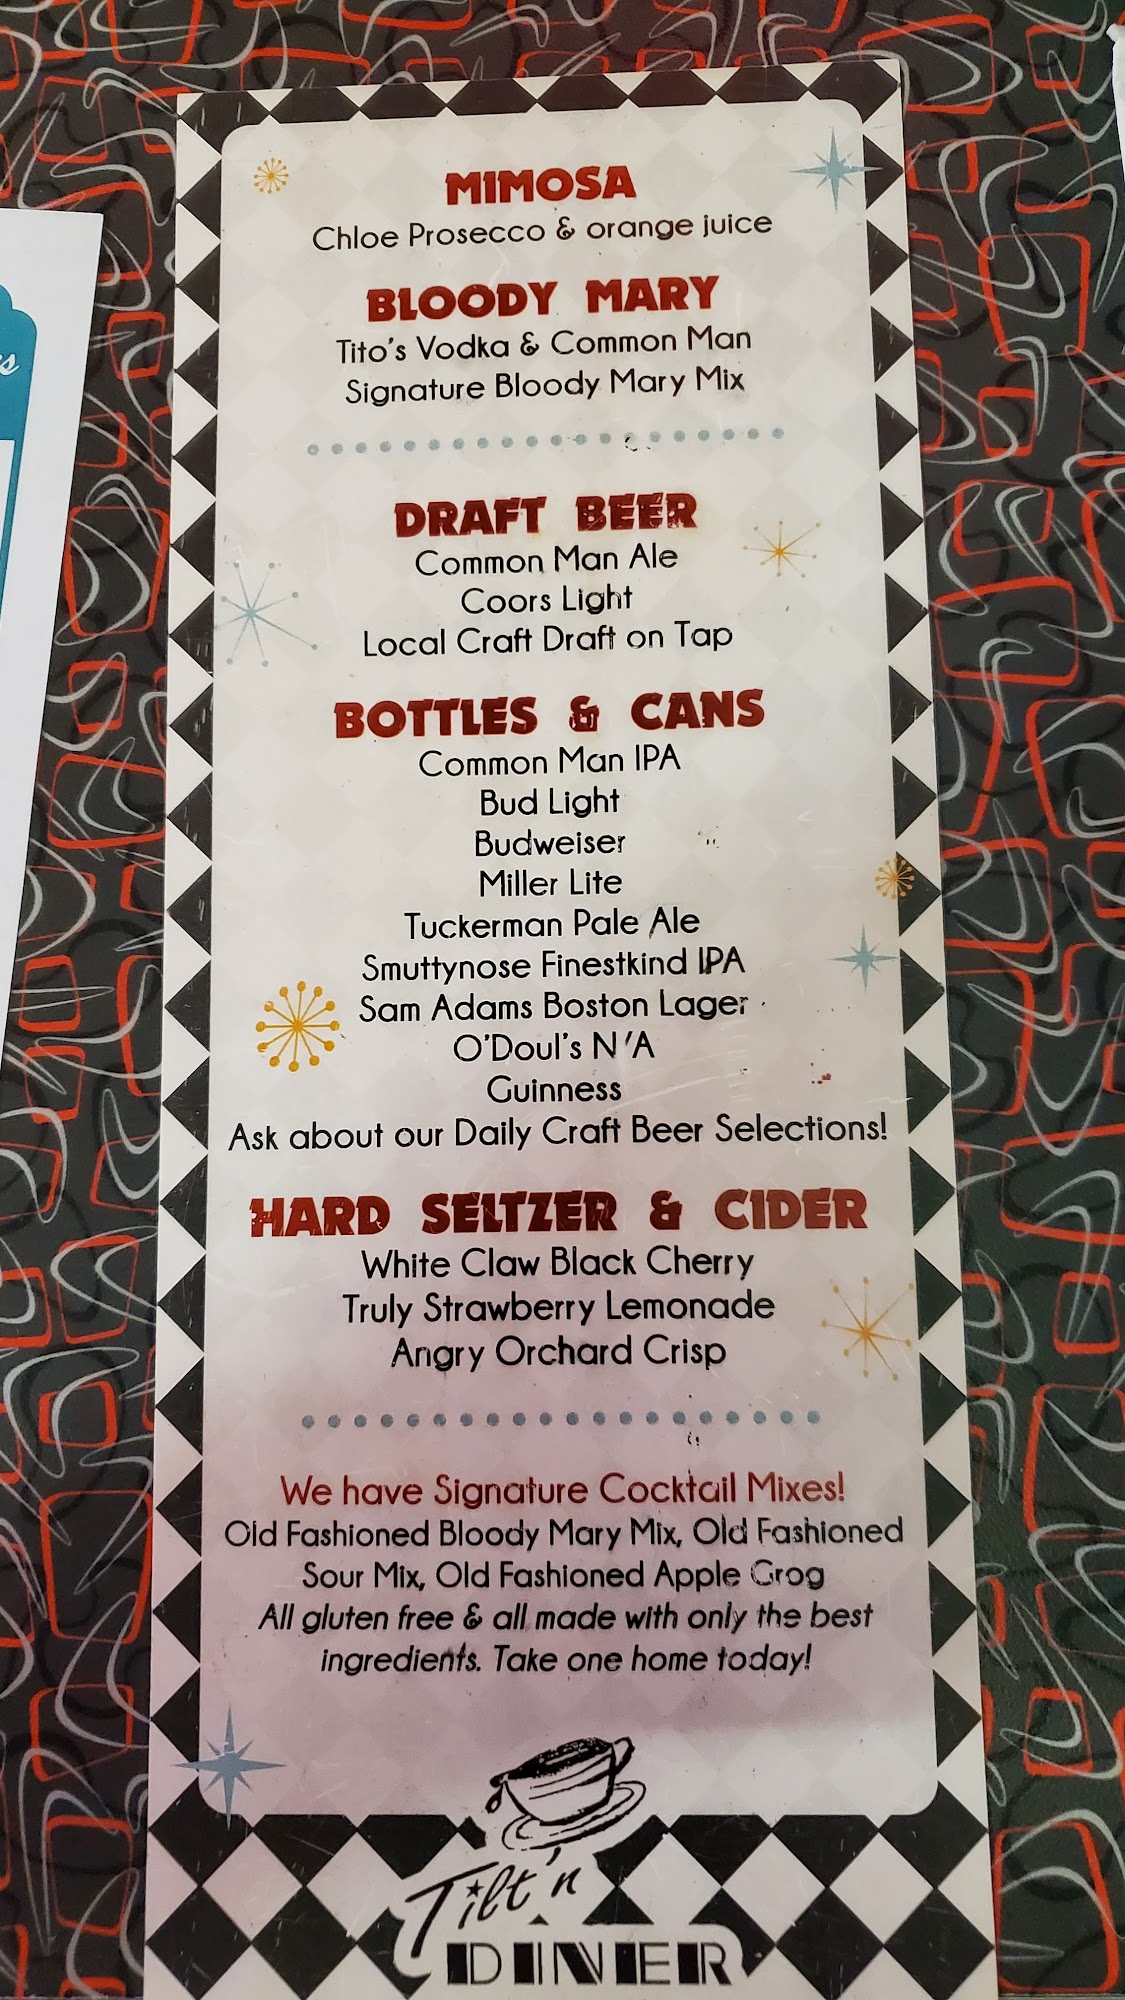 MIMOSA
Chloe Prosecco & orange juice
BLOODY MARY
Tito's Vodka & Common Man
Signature Bloody Mary Mix
DRAFT BEER
Common Man Ale
Coors Light
Local Craft Draft on Tap
BOTTLES & CANS
Common Man IPA
Bud Light
Budweiser
Miller Lite
Tuckerman Pale Ale
Smuttynose Finestkind IPA
Sam Adams Boston Lager
O'Doul's N/A
Guinness
Ask about our Daily Craft Beer Selections!
HARD SELTZER & CIDER
White Claw Black Cherry
Truly Strawberry Lemonade
Angry Orchard Crisp
We have Signature Cocktail Mixes!
Old Fashioned Bloody Mary Mix, Old Fashioned
Sour Mix, Old Fashioned Apple Grog
All gluten free & all made with only the best
ingredients. Take one home today!
Tilt'n
DINER